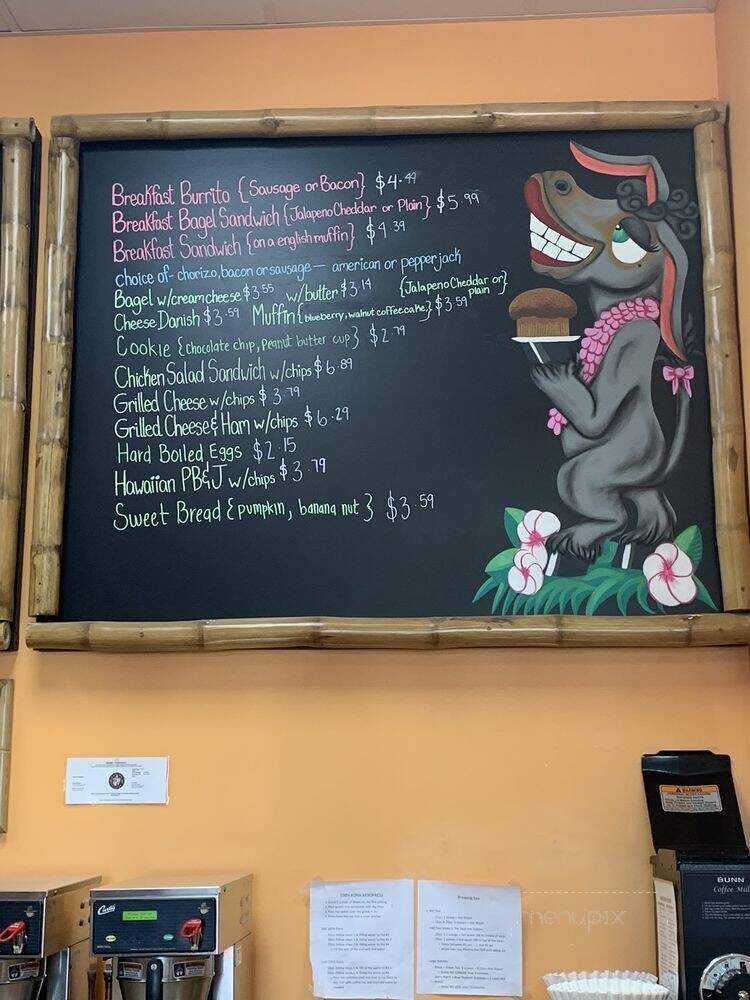 Breakfast Burrito {Sausage or Bacon} $4.49
Breakfast Bagel Sandwich {Jalapeno Cheddar or Plain} $5.99
Breakfast Sandwich {on a english muffin} $4.39
choice of- chorizo, bacon or sausage — american or pepper jack
Bagel w/creamcheese $3.55 w/butter $3.19 {Jalapeno Cheddar or Plain}
Cheese Danish $3.59 Muffin {blueberry, walnut coffee cake} $3.59
Cookie {chocolate chip, peanut butter cup} $2.79
Chicken Salad Sandwich w/chips $6.89
Grilled Cheese w/chips $3.79
Grilled Cheese & Ham w/chips $6.29
Hard Boiled Eggs $2.15
Hawaiian PB&J w/chips $3.79
Sweet Bread {pumpkin, banana nut} $3.59
WARNING
BUNN
Coffee Mill
Curtis
100% KONA AEROPRESS
Brewing Tea
menupix